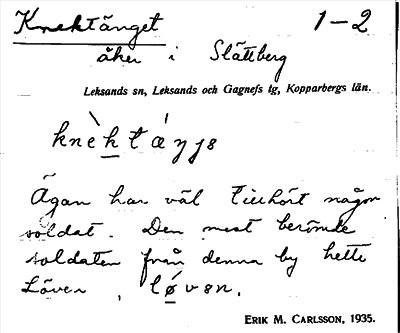 Knektänget 1-2
åker i Slättberg
Leksands sn, Leksands och Gagnefs tg, Kopparbergs län.
knèktáŋjə
Ägan har väl tillhört någon
soldat. Den mest berömde
soldaten från denna by hette
Löven, lǿvən.
ERIK M. CARLSSON, 1935.